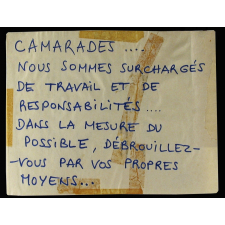 CAMARADES ....
NOUS SOMMES SURCHARGÉS
DE TRAVAIL ET DE
RESPONSABILITÉS ....
DANS LA MESURE DU
POSSIBLE, DÉBROUILLEZ-
-VOUS PAR VOS PROPRES
MOYENS...